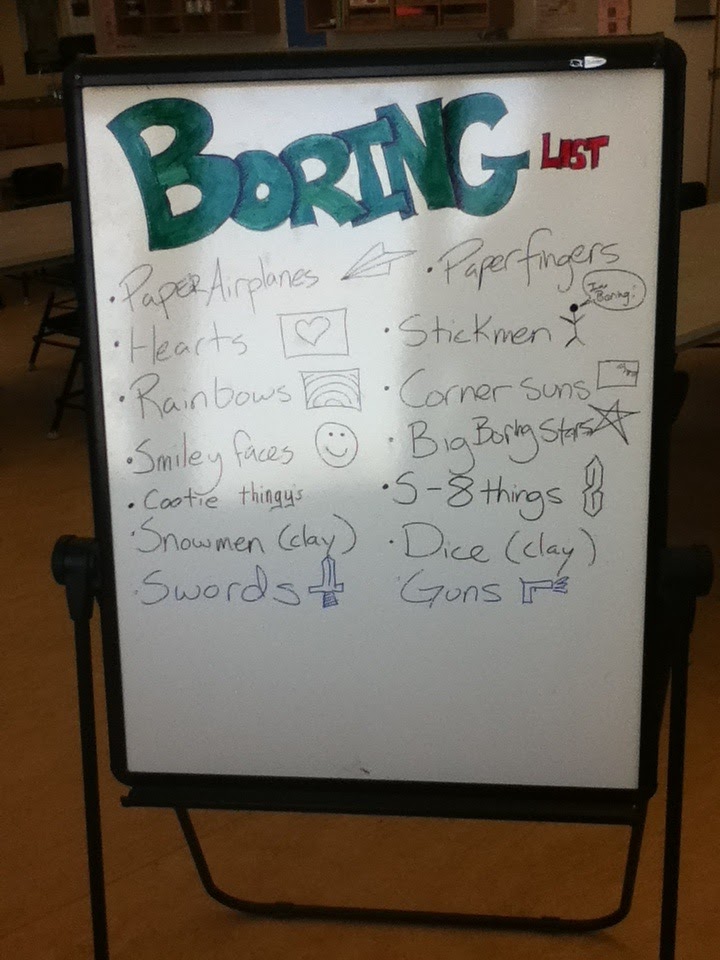 BORING LIST
• Paper Airplanes
• Hearts
• Rainbows
• Smiley faces
• Cootie thingy's
• Snowmen (clay)
• Swords
• Paper fingers
I'm Boring!
• Stickmen
• Corner suns
• Big Boring Stars
• S-8 things
• Dice (clay)
Guns